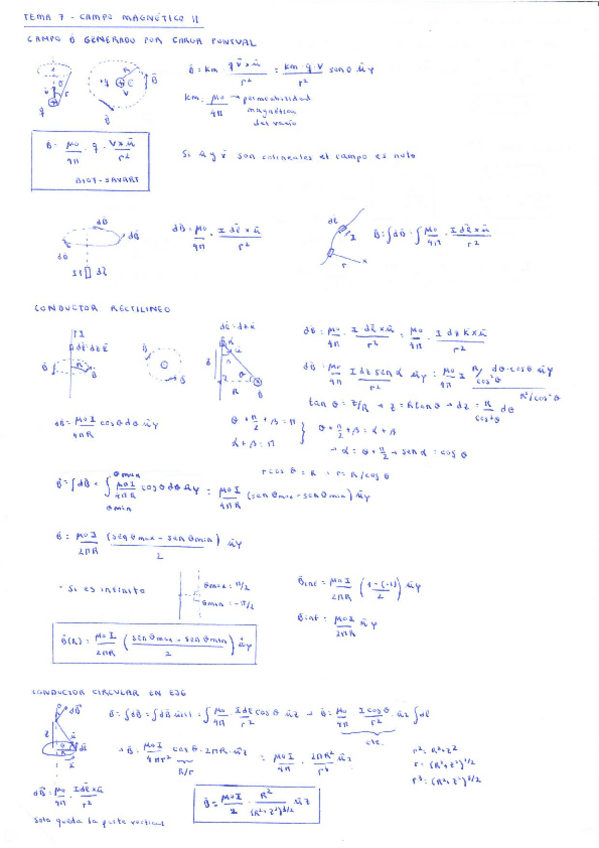 TEMA 7 - CAMPO MAGNÉTICO II
CAMPO B GENERADO POR CARGA PUNTUAL
B = km q v x u / r² = km · q · v / r² senθ uγ
km = μ0 / 4π → permeabilidad magnética del vacío
B = μ0 / 4π · q · v x u / r²
BIOT-SAVART
Si u y v son colineales el campo es nulo
dB = μ0 / 4π · I dl x u / r²
B = ∫dB = ∫ μ0 / 4π · I dl x u / r²
CONDUCTOR RECTILINEO
dl = dz k
dB = μ0 / 4π · I dl x u / r² = μ0 / 4π · I dz k x u / r²
dB = μ0 / 4π I dz sen α / r² uγ = μ0 / 4π I R/cos²θ dθ·cosθ uγ / R²/cos²θ
tan θ = z/R → z = R tan θ → dz = R / cos²θ dθ
dB = μ0 I / 4πR cosθ dθ uγ
θ + π/2 + β = π
α + β = π
θ + π/2 + β = α + β
→ α = θ + π/2 → sen α = cos θ
r cos θ = R → r = R/cos θ
B = ∫dB = ∫ μ0 I / 4πR cosθ dθ uγ = μ0 I / 4πR (sen θmax - sen θmin) uγ
θmax
θmin
B = μ0 I / 2πR (sen θmax - sen θmin) / 2 uγ
- Si es infinito
θmax = π/2
θmin = -π/2
Binf = μ0 I / 2πR (1-(-1) / 2) uγ
Binf = μ0 I / 2πR uγ
B(R) = μ0 I / 2πR (sen θmax - sen θmin / 2) uγ
CONDUCTOR CIRCULAR EN EJE
B = ∫dB = ∫ μ0 / 4π I dl cos θ / r² uz → B = μ0 / 4π I cos θ / r² uz ∫dl
cte.
→ B = μ0 I / 4πr² cos θ · 2πR · uz = μ0 I / 4π · 2πR² / r³ uz
R/r
r² = R² + z²
r = (R² + z²)^1/2
r³ = (R² + z²)^3/2
dB = μ0 / 4π · I dl x u / r²
solo queda la parte vertical
B = μ0 I / 2 · R² / (R² + z²)^3/2 uz